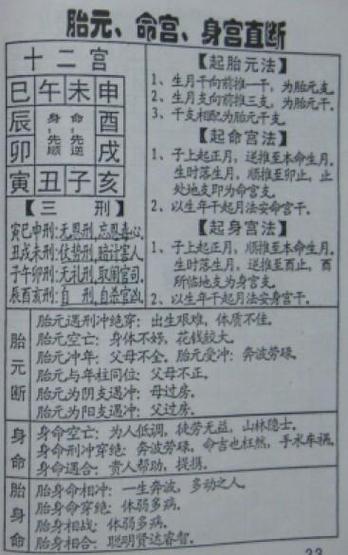 胎元、命宫、身宫直断
十二宫
巳午未申
辰 身-先顺 命-先逆 酉
卯 戌
寅丑子亥
【三刑】
寅巳申刑:无恩刑,忘恩毒心。
丑戌未刑:仗势刑,暗计害人。
子午卯刑:无礼刑,取闹官司。
辰酉亥刑:自刑,自杀官凶。
【起胎元法】
1、生月干向前推一干,为胎元支。
2、生月支向前推三支,为胎元干。
3、干支相配为胎元干支。
【起命宫法】
1、子上起正月,逆推至本命生月。
生时落生月,顺推至卯止,止
处地支即为命宫支。
2、以生年干起月法安命宫干。
【起身宫法】
1、子上起正月,顺推至本命生月。
生时落生月,逆推至酉止,酉
所临地支为身宫支。
2、以生年干起月法安身宫干。
胎元断
胎元遇刑冲绝穿:出生艰难,体质不佳。
胎元空亡:身体不好,花钱较大。
胎元冲年:父母不全。胎元受冲:奔波劳碌。
胎元与年柱同位:父母不正。
胎元为阴支遇冲:母过房。
胎元为阳支遇冲:父过房。
身命
身命空亡:为人低调,徒劳无益,山林隐士。
身命刑冲穿绝:奔波劳碌,命吉也枉然,手术车祸。
身命遇合:贵人帮助,提携。
胎身命
胎身命相冲:一生奔波,多动之人。
胎身命穿绝:体弱多病。
胎身相战:体弱多病。
胎身相合:聪明贤达睿智。
23